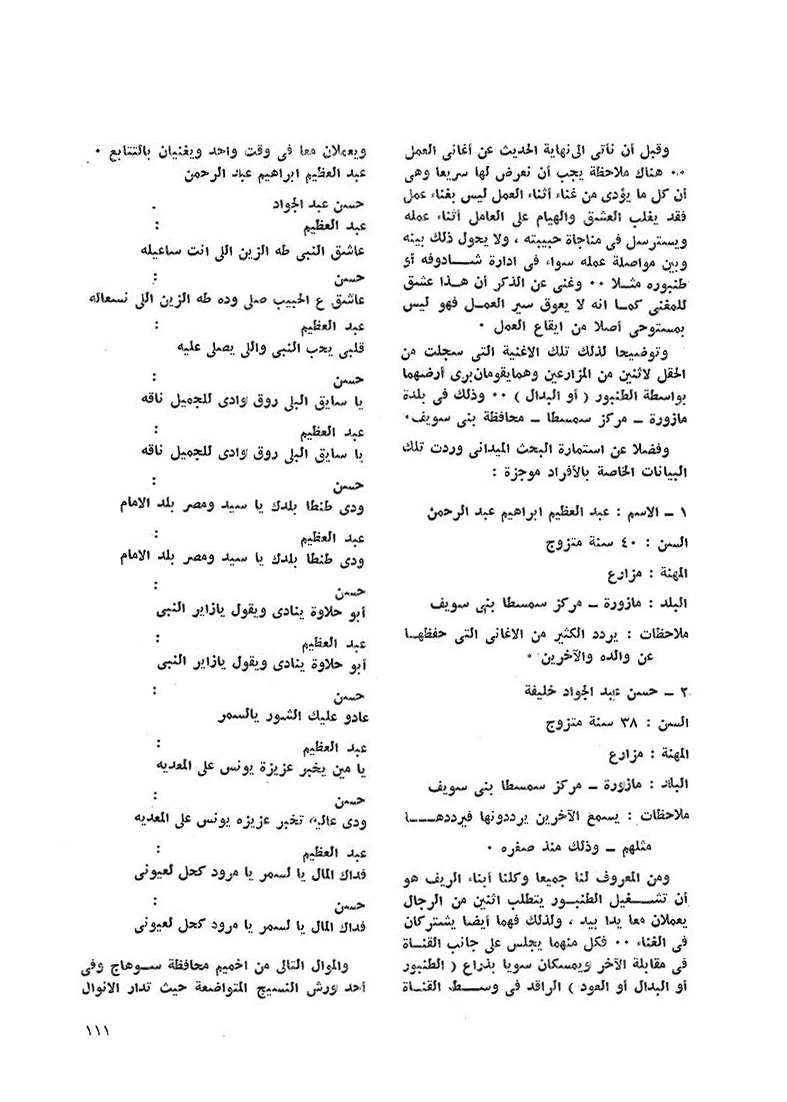 وقبل أن نأتى الى نهاية الحديث عن أغانى العمل
٠٠ هناك ملاحظة يجب أن نعرض لها سريعا وهى
أن كل ما يؤدى من غناء أثناء العمل ليس بغناء عمل
فقد يغلب العشق والهيام على العامل أثناء عمله
ويسترسل فى مناجاة حبيبته ، ولا يحول ذلك بينه
وبين مواصلة عمله سواء فى ادارة شـــادوفه أو
طنبوره مثـلا ٠٠ وغنى عن الذكر أن هـذا عشق
للمغنى كمـا انه لا يعوق سير العمـل فهو ليس
بمستوحى أصلا من ايقاع العمل ٠
وتوضيحا لذلك تلك الاغنية التى سجلت من
الحقل لاثنين من المزارعين وهما يقومان برى أرضهما
بواسطة الطنبور ( أو البدال ) ٠٠ وذلك فى بلدة
مازورة ــ مركز سمسطا ــ محافظة بنى سويف٠
وفضلا عن استمارة البحث الميدانى وردت تلك
البيانات الخاصة بالأفراد موجزة :
١ ــ الاسم : عبد العظيم ابراهيم عبد الرحمن
السن : ٤٠ سنة متزوج
المهنة : مزارع
البلد : مازورة ــ مركز سمسطا بنى سويف
ملاحظات : يردد الكثير من الاغانى التى حفظهـا
عن والده والآخرين ٠
٢ ــ حسن عبد الجواد خليفة
السن : ٣٨ سنة متزوج
المهنة : مزارع
البلد : مازورة ــ مركز سمسطا بنى سويف
ملاحظات : يسمع الآخرين يرددونها فيرددهــــا
مثلهم ــ وذلك منذ صغره ٠
ومن المعروف لنا جميعا وكلنا أبناء الريف هو
أن تشــغيل الطنبــور يتطلب اثنين من الرجال
يعملان معا يدا بيد ، ولذلك فهما أيضا يشتركان
فى الغناء ٠٠ فكل منهما يجلس على جانب القنـاة
فى مقابلة الآخر ويمسكان سويا بذراع ( الطنبور
أو البدال أو العود ) الراقد فى وســـط القنـاة
ويعملان معا فى وقت واحد ويغنيان بالتتابع ٠
عبد العظيم ابراهيم عبد الرحمن
حسن عبد الجواد
عبد العظيم :
عاشق النبى طه الزين اللى انت ساعيله
حسن :
عاشق ع الحبيب صلى وده طه الزين اللى نسعاله
عبد العظيم :
قلبى يحب النبى واللى يصلى عليه
حسن :
يا سايق البلى روق لوادى للجميل ناقه
عبد العظيم :
يا سايق البلى روق لوادى للجميل ناقه
حسن :
ودى طنطا بلدك يا سيد ومصر بلد الامام
عبد العظيم :
ودى طنطا بلدك يا سيد ومصر بلد الامام
حسن :
أبو حلاوة ينادى ويقول يازاير النبى
عبد العظيم :
أبو حلاوة ينادى ويقول يازاير النبى
حسن :
عادو عليك الشور يالسمر
عبد العظيم :
يا مين يخبر عزيزة يونس على المعديه
حسن :
ودى عاليه تخبر عزيزه يونس على المعديه
عبد العظيم :
فداك المال يا لسمر يا مرود كحل لعيونى
حسن :
فداك المال يا لسمر يا مرود كحل لعيونى
والموال التالى من اخميم محافظة ســوهاج وفى
أحد ورش النسيج المتواضعة حيث تدار الانوال
١١١